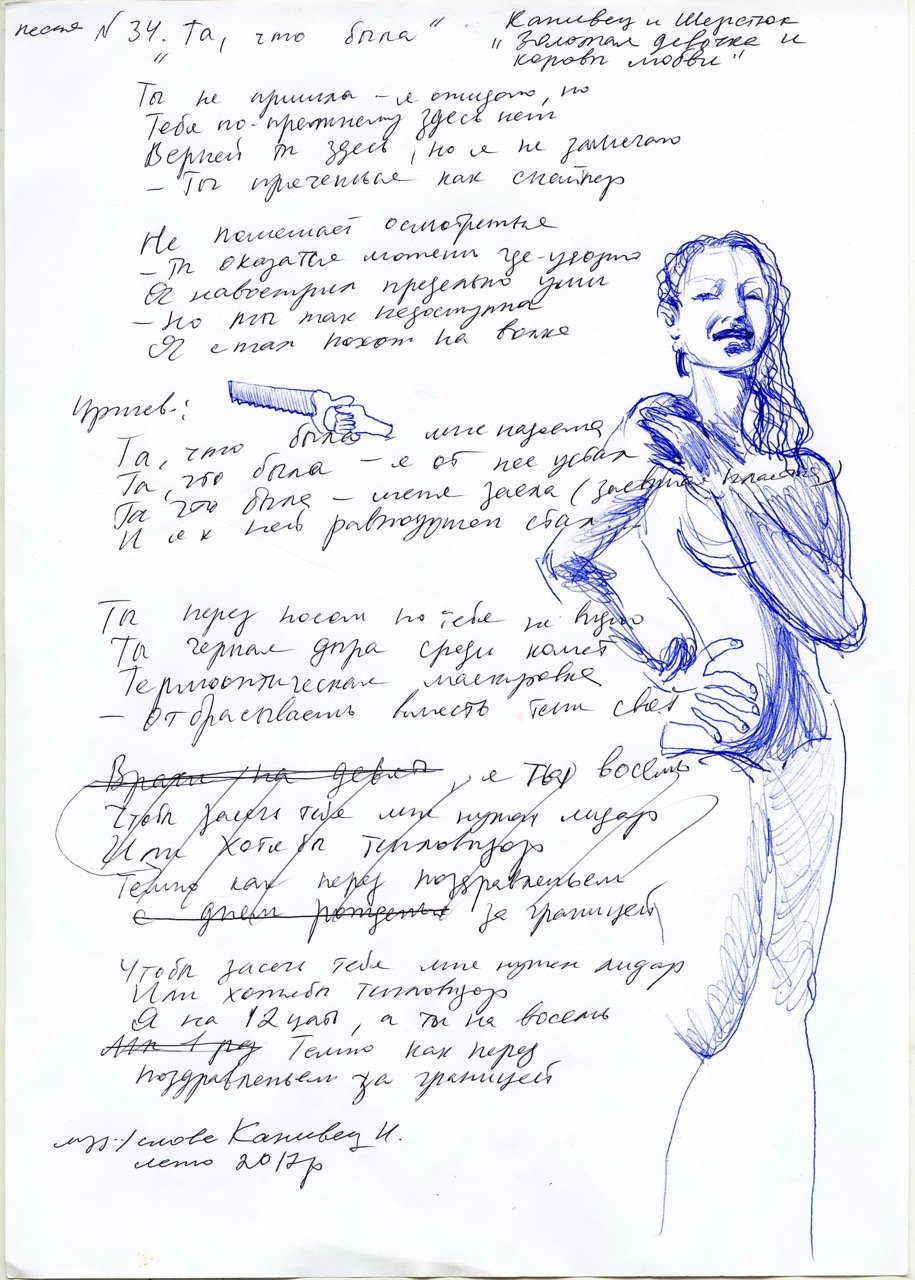 песня № 34. "Та, что была"
Каливец и Шерстюк
"Золотая девочка и
коровы любви"
Ты не пришла – я ожидаю, но
Тебя по-прежнему здесь нет
Верней ты здесь, но я не замечаю
– Ты прячешься как снайпер
Не помешает осмотреться
– Ты оказаться можешь где-угодно
Я навострил предельно уши
– Но ты так недоступна
Я стал похож на волка
Припев:
Та, что была – мне надоела
Та, что была – я от нее устал
Та что была – меня заела (заевшая пластинка)
И я к ней равнодушен стал
Ты перед носом но тебя не видно
Ты черная дыра среди комет
Термооптическая маскировка
– отбрасываешь вместо тени свет
Враги на девять, а ты восемь
Чтобы засечь тебя мне нужен лидар
Или хотябы тепловизор
Темно как перед поздравленьем
с днем рожденья за границей
Чтобы засечь тебя мне нужен лидар
Или хотябы тепловизор
Я на 12 часы, а ты на восемь
Темно как перед
поздравленьем за границей
муз./слова Каливец И.
лето 2017г